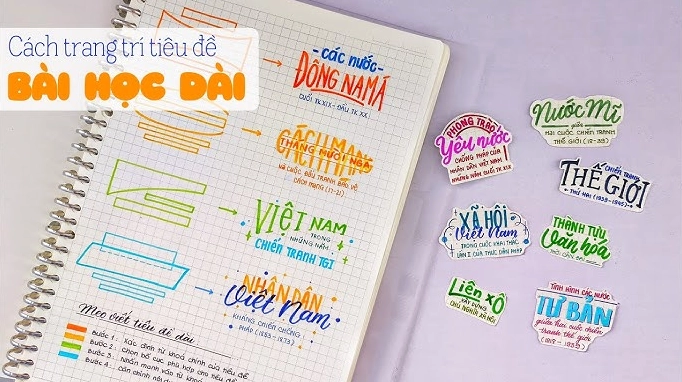 Cách trang trí tiêu đề
BÀI HỌC DÀI
CÁC NƯỚC
ĐÔNG NAM Á
CUỐI TK XIX - ĐẦU TK XX
CÁCH MẠNG
THÁNG MƯỜI NGA
VÀ CUỘC ĐẤU TRANH BẢO VỆ
CÁCH MẠNG (17-21)
VIỆT NAM
TRONG
NHỮNG NĂM
CHIẾN TRANH TG1
NHÂN DÂN
Việt Nam
KHÁNG CHIẾN CHỐNG
PHÁP (1858-1873)
Mẹo viết tiêu đề dài
Bước 1: Xác định từ khoá chính của tiêu đề
Bước 2: Chọn bố cục phù hợp cho tiêu đề
Bước 3: Nhấn mạnh vào từ khoá
Bước 4: Căn chỉnh
PHONG TRÀO
Yêu nước
CHỐNG PHÁP CỦA
NHÂN DÂN VIỆT NAM
NHỮNG NĂM CUỐI TK XIX
Nước Mĩ
giữa
HAI CUỘC CHIẾN TRANH
THẾ GIỚI (18-39)
CHIẾN TRANH
THẾ GIỚI
THỨ HAI (1939-1945)
XÃ HỘI
Việt Nam
TRONG CUỘC KHAI THÁC
LẦN I CỦA THỰC DÂN PHÁP
THÀNH TỰU
Văn hóa
Liên xô
XÂY DỰNG
CHỦ NGHĨA XÃ HỘI
TÌNH HÌNH CÁC NƯỚC
TƯ BẢN
giữa hai cuộc chiến
tranh thế giới
(1918-1939)